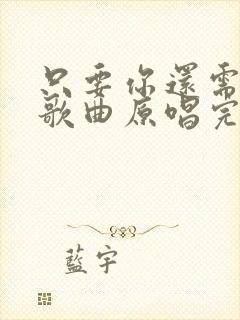 只要你還需
歌曲原唱完
藍宇